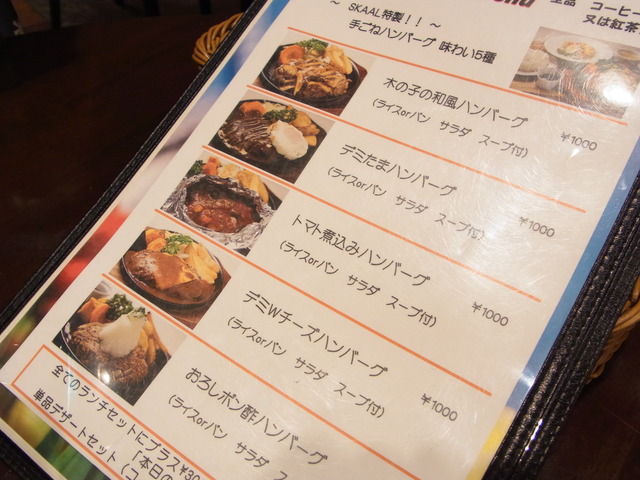 ～ SKAAL特製！！ ～
手ごねハンバーグ 味わい5種
コーヒー
又は紅茶
木の子の和風ハンバーグ
(ライスorパン サラダ スープ付)
¥1000
デミたまハンバーグ
(ライスorパン サラダ スープ付)
¥1000
トマト煮込みハンバーグ
(ライスorパン サラダ スープ付)
¥1000
デミWチーズハンバーグ
(ライスorパン サラダ スープ付)
¥1000
おろしポン酢ハンバーグ
(ライスorパン サラダ ス
全てのランチセットにプラス¥30
「本日の
単品デザートセット (コ